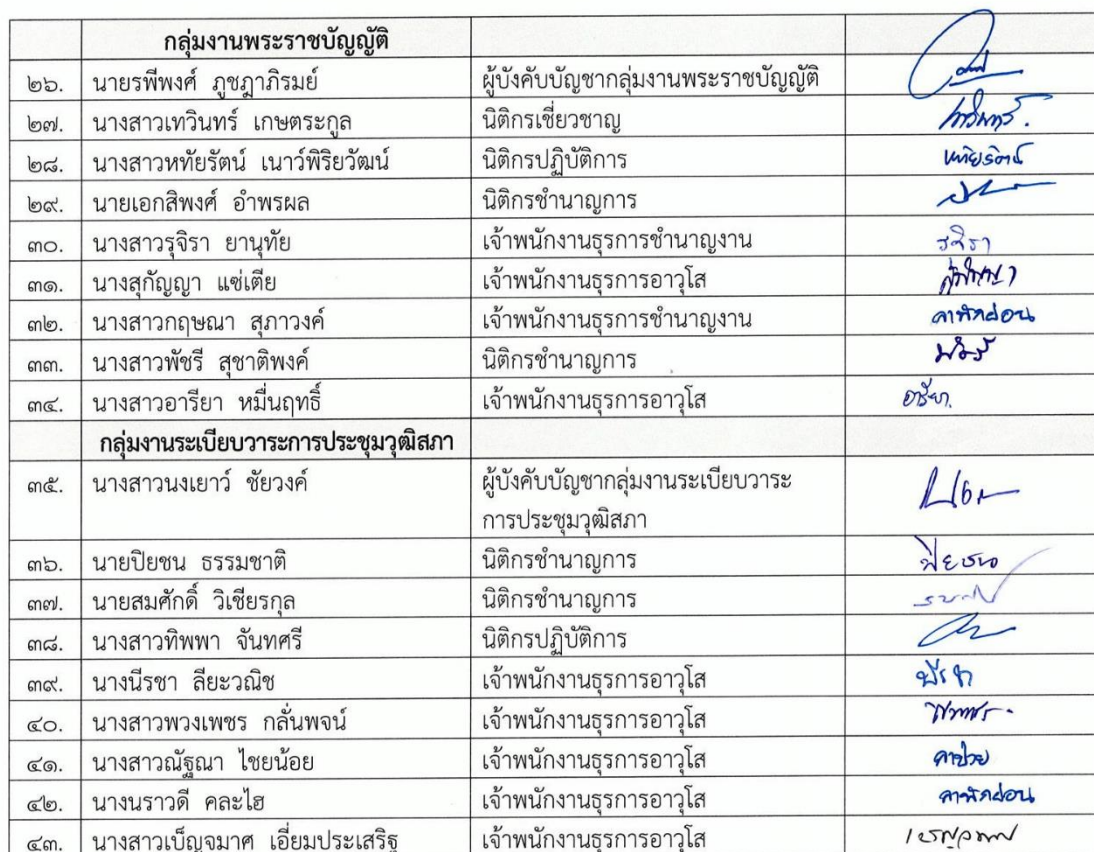 กลุ่มงานพระราชบัญญัติ
๒๖. นายรพีพงศ์ ภูชฎาภิรมย์ ผู้บังคับบัญชากลุ่มงานพระราชบัญญัติ
๒๗. นางสาวเทวินทร์ เกษตระกูล นิติกรเชี่ยวชาญ เทวินทร์.
๒๘. นางสาวหทัยรัตน์ เนาว์พิริยวัฒน์ นิติกรปฏิบัติการ หทัยรัตน์
๒๙. นายเอกสิพงศ์ อำพรผล นิติกรชำนาญการ
๓๐. นางสาวรุจิรา ยานุทัย เจ้าพนักงานธุรการชำนาญงาน รุจิรา
๓๑. นางสุกัญญา แซ่เตีย เจ้าพนักงานธุรการอาวุโส สุกัญญา
๓๒. นางสาวกฤษณา สุภาวงค์ เจ้าพนักงานธุรการชำนาญงาน ลาพักผ่อน
๓๓. นางสาวพัชรี สุชาติพงค์ นิติกรชำนาญการ พัชรี
๓๔. นางสาวอารียา หมื่นฤทธิ์ เจ้าพนักงานธุรการอาวุโส อารียา.
กลุ่มงานระเบียบวาระการประชุมวุฒิสภา
๓๕. นางสาวนงเยาว์ ชัยวงค์ ผู้บังคับบัญชากลุ่มงานระเบียบวาระ
การประชุมวุฒิสภา
๓๖. นายปิยชน ธรรมชาติ นิติกรชำนาญการ ปิยชน
๓๗. นายสมศักดิ์ วิเชียรกุล นิติกรชำนาญการ
๓๘. นางสาวทิพพา จันทศรี นิติกรปฏิบัติการ
๓๙. นางนีรชา ลียะวณิช เจ้าพนักงานธุรการอาวุโส นีรชา
๔๐. นางสาวพวงเพชร กลั่นพจน์ เจ้าพนักงานธุรการอาวุโส
๔๑. นางสาวณัฐณา ไชยน้อย เจ้าพนักงานธุรการอาวุโส ลาป่วย
๔๒. นางนราวดี คละไฮ เจ้าพนักงานธุรการอาวุโส ลาพักผ่อน
๔๓. นางสาวเบ็ญจมาศ เอี่ยมประเสริฐ เจ้าพนักงานธุรการอาวุโส เบญจมาศ